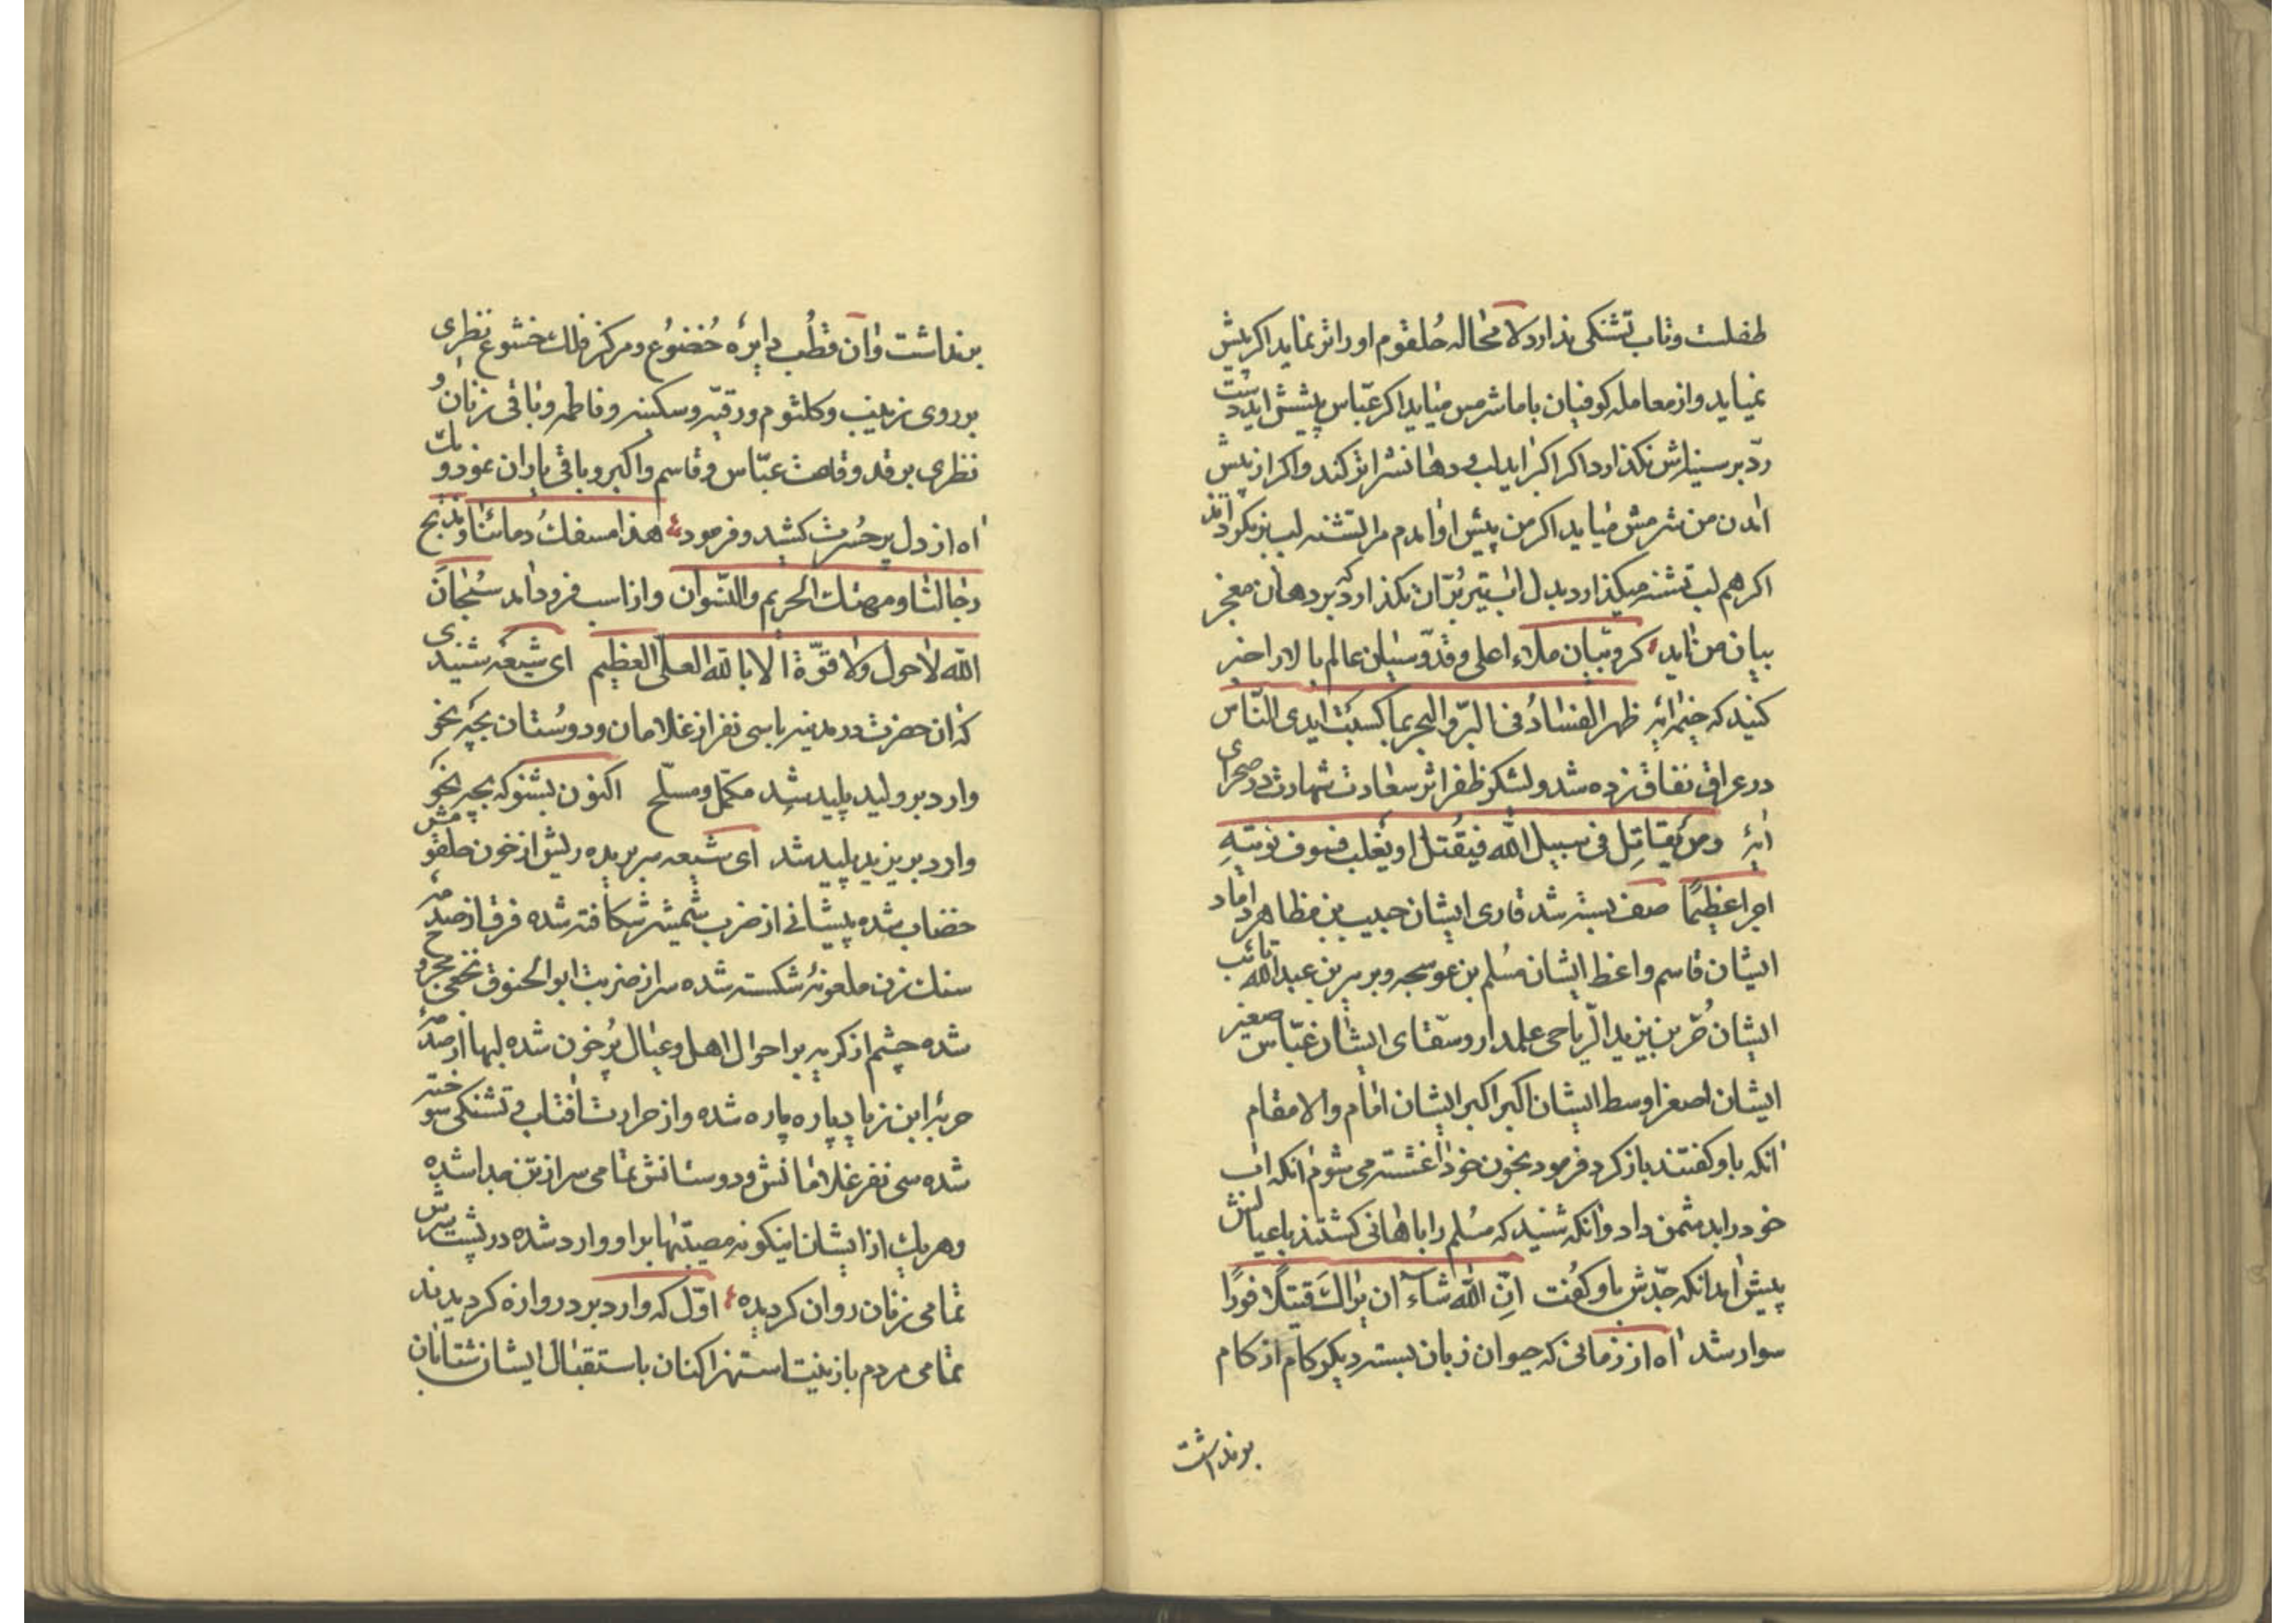 طفلست وتاب تشنکی ندارد لا محاله حُلقوم او را تر نماید اکر پیش
نمیاید واز معامله کوفیان باما شرمش میاید اکر عبّاس پیشش اید دست
ردّ بر سینه‌اش نکذارد اکر اکبر اید لب و دهانش را تر کند واکر از پیش
امدن من شرمش میاید اکر من پیش او امدم مرا لب تشنه لب بر نکرداند
اکر هم لب تشنه میکذارد بدل اب تیر بُرّان نکذارد که بر دهان معجز
بیان من ناید کرّوبیان ملاء اعلی و قدّوسیان عالم بالا را خبر
کنید که خیمهٔ ایه ظهر الفسادُ فی البرّ والبحر بما کسبت ایدی النّاس
در عراق نفاق زده شد ولشکر ظفر اثر سعادت شهادت در صحرای
ایهٔ ومن یقاتِل فی سبیل الله فیقُتل او یَغلب فسوف نؤتیهِ
اجراً عظیمًا صف بسته شد قاری ایشان حبیب بن مظاهر داماد
ایشان قاسم واعظ ایشان مسُلم بن عوسجه وبریر بن عبدالله تائب
ایشان حُرّ بن یزید الّریاحی علمدار وسقّای ایشان عبّاس صغیر
ایشان اصغر اوسط ایشان اکبر اکبر ایشان امام والامقام
انکه باو کفتند باز کرد فرمود بخون خود اغشته می شوم انکه اب
خود را بدشمن داد وانکه شنید که مسُلم را باهانی کشتند باعیالش
پیش امد انکه جدّش باو کفُت انِّ الله شاء ان یراك قتیلًا فورًا
سوار شد اه از زمانی که حیوان زبان بسته دیکر کام از کام
بر نداشت
بر نداشت وان قطُب دایرهٔ خُضوُع ومرکز فلك خشوع نظری
بر روی زینب وکلثوم ورقیّه وسکینه وفاطمه وباقی زنان و
نظری بر قد وقامت عبّاس وقاسم واکبر وباقی یاران نمود و یك
اه از دل پر حسُرت کشید وفرمود هذا مسفك دمائنا ومذبح
رجالنا ومهتك الحریم والنّسوان واز اسب فرود امد سُبحان
الله لا حول ولا قوّة الا بالله العلی العظیم ای شیعه شنیدی
که ان حضرت در مدینه باسی نفر از غلامان ودوسُتان بچه نحو
وارد بر ولید پلید شد مکمّل ومسلّح اکنون بشنو که بچه نحو
وارد بر یزید پلید شد ای شیعه سر بریده ریش از خون حلقومش
خضاب شده پیشانی از ضرب شمشیر شکافته شده فرق از صدمهٔ
سنك زن ملعونه شکسته شده سر از ضربت ابوالحنوق نخعی مجروح
شده چشم از کریه بر احوال اهل وعیال پُر خون شده لبها از صدمهٔ
حربهٔ ابن زیاد پاره پاره شده واز حرارت افتاب وتشنکی سوخته
شده سی نفر غلامانش ودوستانش تمامی سر از تن جدا شده
وهر یك از ایشان اینکونه مصیبتها بر او وارد شده در پشت سرش
تمامی زنان روان کردیده اوّل که وارد بر دروازه کردیدند
تمامی مردم بازینت استهزا کنان باستقبال ایشان شتابان